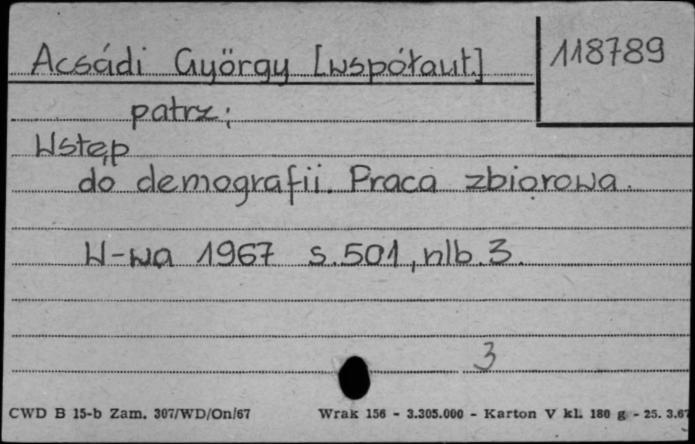 Acsádi György [współaut.]
118789
patrz:
Wstęp
do demografii. Praca zbiorowa.
W-wa 1967 s. 501, nlb. 3.
3
CWD B 15-b Zam. 307/WD/On/67 Wrak 156 - 3.305.000 - Karton V kl. 180 g - 25. 3.67